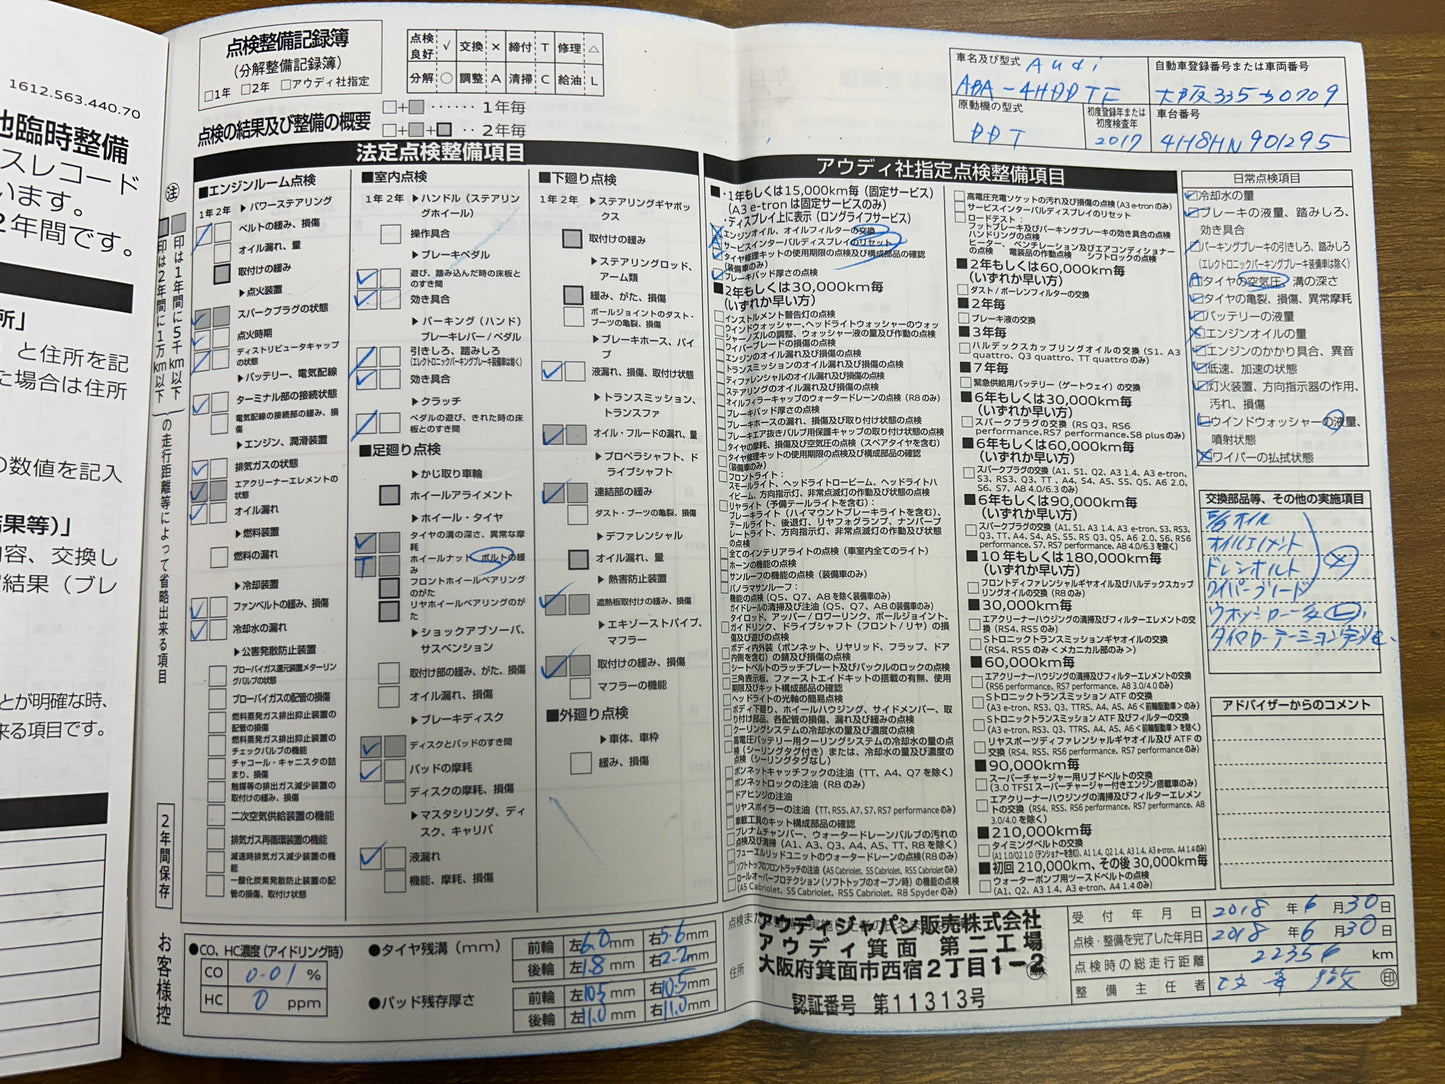 1612.563.440.70
地臨時整備
スレコード
います。
2年間です。
所」
」と住所を記
た場合は住所
の数値を記入
結果等)」
内容、交換し
結果(ブレ
とが明確な時、
来る項目です。
点検整備記録簿
(分解整備記録簿)
□1年 □2年 □アウディ社指定
点検良好 √ 交換 × 締付 T 修理 △
分解 ○ 調整 A 清掃 C 給油 L
点検の結果及び整備の概要
□+■ ‥‥‥ 1年毎
□+■+■ ‥ 2年毎
車名及び型式 Audi
ABA-4HDDTF
自動車登録番号または車両番号
大阪335 30709
原動機の型式
DDT
初度登録年または初度検査年
2017
車台番号
4H8HN901295
法定点検整備項目
㊟
印は1年間に5千km以下
印は2年間に1万km以下
の走行距離等によって省略出来る項目
2年間保存
お客様控
■エンジンルーム点検
1年2年 ▶パワーステアリング
ベルトの緩み、損傷
オイル漏れ、量
取付けの緩み
▶点火装置
スパークプラグの状態
点火時期
ディストリビュータキャップの状態
▶バッテリー、電気配線
ターミナル部の接続状態
電気配線の接続部の緩み、損傷
▶エンジン、潤滑装置
排気ガスの状態
エアクリーナーエレメントの状態
オイル漏れ
▶燃料装置
燃料の漏れ
▶冷却装置
ファンベルトの緩み、損傷
冷却水の漏れ
▶公害発散防止装置
ブローバイガス還元装置メターリングバルブの状態
ブローバイガスの配管の損傷
燃料蒸発ガス排出抑止装置の配管の損傷
燃料蒸発ガス排出抑止装置のチェックバルブの機能
チャコール・キャニスタの詰まり、損傷
触媒等の排出ガス減少装置の取付けの緩み、損傷
二次空気供給装置の機能
排気ガス再循環装置の機能
減速時排気ガス減少装置の機能
一酸化炭素発散防止装置の配管の損傷、取付け状態
■室内点検
1年2年 ▶ハンドル(ステアリングホイール)
操作具合
▶ブレーキペダル
遊び、踏み込んだ時の床板とのすき間
効き具合
▶パーキング(ハンド)ブレーキレバー/ペダル
引きしろ、踏みしろ
(エレクトロニックパーキングブレーキ装備車は除く)
効き具合
▶クラッチ
ペダルの遊び、きれた時の床板とのすき間
■足廻り点検
▶かじ取り車輪
ホイールアライメント
▶ホイール・タイヤ
タイヤの溝の深さ、異常な摩耗
ホイールナット、ボルトの緩み
フロントホイールベアリングのがた
リヤホイールベアリングのがた
▶ショックアブソーバ、サスペンション
取付け部の緩み、がた、損傷
オイル漏れ、損傷
▶ブレーキディスク
ディスクとパッドのすき間
パッドの摩耗
ディスクの摩耗、損傷
▶マスタシリンダ、ディスク、キャリパ
液漏れ
機能、摩耗、損傷
■下廻り点検
1年2年 ▶ステアリングギヤボックス
取付けの緩み
▶ステアリングロッド、アーム類
緩み、がた、損傷
ボールジョイントのダスト・ブーツの亀裂、損傷
▶ブレーキホース、パイプ
液漏れ、損傷、取付け状態
▶トランスミッション、トランスファ
オイル・フルードの漏れ、量
▶プロペラシャフト、ドライブシャフト
連結部の緩み
ダスト・ブーツの亀裂、損傷
▶デファレンシャル
オイル漏れ、量
▶熱害防止装置
遮熱板取付けの緩み、損傷
▶エキゾーストパイプ、マフラー
取付けの緩み、損傷
マフラーの機能
■外廻り点検
▶車体、車枠
緩み、損傷
アウディ社指定点検整備項目
■・1年もしくは15,000km毎(固定サービス)
(A3 e-tron は固定サービスのみ)
・ディスプレイ上に表示(ロングライフサービス)
エンジンオイル、オイルフィルターの交換
サービスインターバルディスプレイのリセット
タイヤ修理キットの使用期限の点検及び構成部品の確認(装備車のみ)
ブレーキパッド厚さの点検
■2年もしくは30,000km毎
(いずれか早い方)
インストルメント警告灯の点検
ウインドウォッシャー、ヘッドライトウォッシャーのウォッシャーノズルの調整、ウォッシャー液の量及び作動の点検
ワイパーブレードの損傷の点検
エンジンのオイル漏れ及び損傷の点検
トランスミッションのオイル漏れ及び損傷の点検
ディファレンシャルのオイル漏れ及び損傷の点検
ステアリングのオイル漏れ及び損傷の点検
オイルフィラーキャップのウォータードレーンの点検(R8のみ)
ブレーキパッド厚さの点検
ブレーキホースの漏れ、損傷及び取り付け状態の点検
ブレーキエア抜きバルブ用保護キャップの取り付け状態の点検
タイヤの摩耗、損傷及び空気圧の点検(スペアタイヤを含む)
タイヤ修理キットの使用期限の点検及び構成部品の確認(装備車のみ)
フロントライト:
スモールライト、ヘッドライトロービーム、ヘッドライトハイビーム、方向指示灯、非常点滅灯の作動及び状態の点検
リヤライト(予備テールライトを含む):
ブレーキライト(ハイマウントブレーキライトを含む)、テールライト、後退灯、リヤフォグランプ、ナンバープレートライト、方向指示灯、非常点滅灯の作動及び状態の点検
全てのインテリアライトの点検(車室内全てのライト)
ホーンの機能の点検
サンルーフの機能の点検(装備車のみ)
パノラマサンルーフ:
機能の点検(Q5、Q7、A8を除く装備車のみ)
ガイドレールの清掃及び注油(Q5、Q7、A8の装備車のみ)
タイロッド、アッパー/ロワーリンク、ボールジョイント、ガイドリンク、ドライブシャフト(フロント/リヤ)の損傷及び遊びの点検
ボディ内外装(ボンネット、リヤリッド、フラップ、ドア内側を含む)の錆及び損傷の点検
シートベルトのラッチプレート及びバックルのロックの点検
三角表示板、ファーストエイドキットの搭載の有無、使用期限及びキット構成部品の確認
ヘッドライトの光軸の簡易点検
ボディ下廻り、ホイールハウジング、サイドメンバー、取り付け部品、各配管の損傷、漏れ及び緩みの点検
クーリングシステムの冷却水の量及び濃度の点検
高電圧バッテリー用クーリングシステムの冷却水の量の点検(シーリングタグ付き)または、冷却水の量及び濃度の点検(シーリングタグなし)
ボンネットキャッチフックの注油(TT、A4、Q7を除く)
ボンネットロックの注油(R8のみ)
ドアヒンジの注油
リヤスポイラーの注油(TT、RS5、A7、S7、RS7 performanceのみ)
車載工具のキット構成部品の確認
プレナムチャンバー、ウォータードレーンバルブの汚れの点検及び清掃(A1、A3、Q3、A4、A5、TT、R8を除く)
フューエルリッドユニットのウォータードレーンの点検(R8のみ)
ソフトトップのフロントラッチの注油(A5 Cabriolet、S5 Cabriolet、RS5 Cabrioletのみ)
ロールオーバープロテクション(ソフトトップのオープン時)の機能の点検(A5 Cabriolet、S5 Cabriolet、RS5 Cabriolet、R8 Spyderのみ)
高電圧充電ソケットの汚れ及び損傷の点検(A3 e-tronのみ)
サービスインターバルディスプレイのリセット
ロードテスト:
フットブレーキ及びパーキングブレーキの効き具合の点検
ハンドリングの点検
ヒーター、ベンチレーション及びエアコンディショナーの点検 電装品の作動点検 シフトロックの点検
■2年もしくは60,000km毎
(いずれか早い方)
ダスト/ポーレンフィルターの交換
■2年毎
ブレーキ液の交換
■3年毎
ハルデックスカップリングオイルの交換(S1、A3 quattro、Q3 quattro、TT quattroのみ)
■7年毎
緊急供給用バッテリー(ゲートウェイ)の交換
■6年もしくは30,000km毎
(いずれか早い方)
スパークプラグの交換(RS Q3、RS6 performance、RS7 performance、S8 plusのみ)
■6年もしくは60,000km毎
(いずれか早い方)
スパークプラグの交換(A1、S1、Q2、A3 1.4、A3 e-tron、S3、RS3、Q3、TT、A4、S4、A5、S5、Q5、A6 2.0、S6、S7、A8 4.0/6.3のみ)
■6年もしくは90,000km毎
(いずれか早い方)
スパークプラグの交換(A1、S1、Q2、A3 1.4、A3 e-tron、S3、RS3、Q3、TT、A4、S4、A5、S5、RS Q3、Q5、A6 2.0、S6、RS6 performance、S7、RS7 performance、A8 4.0/6.3を除く)
■10年もしくは180,000km毎
(いずれか早い方)
フロントディファレンシャルギヤオイル及びハルデックスカップリングオイルの交換(R8のみ)
■30,000km毎
エアクリーナーハウジングの清掃及びフィルターエレメントの交換(RS4、RS5のみ)
Sトロニックトランスミッションギヤオイルの交換(RS4、RS5のみ<メカニカル部のみ>)
■60,000km毎
エアクリーナーハウジングの清掃及びフィルターエレメントの交換(RS6 performance、RS7 performance、A8 3.0/4.0のみ)
Sトロニックトランスミッション ATFの交換
(A3 e-tron、RS3、Q3、TTRS、A4、A5、A6<前輪駆動車>のみ)
Sトロニックトランスミッション ATF及びフィルターの交換
(A3 e-tron、RS3、Q3、TTRS、A4、A5、A6<前輪駆動車>を除く)
リヤスポーツディファレンシャルギヤオイル及びATFの交換(RS4、RS5、RS6 performance、RS7 performanceのみ)
■90,000km毎
スーパーチャージャー用リブドベルトの交換
(3.0 TFSIスーパーチャージャー付きエンジン搭載車のみ)
エアクリーナーハウジングの清掃及びフィルターエレメントの交換(RS4、RS5、RS6 performance、RS7 performance、A8 3.0/4.0を除く)
■210,000km毎
タイミングベルトの交換
(A1 1.0/Q2 1.0(テンショナーを含む)、A1 1.4、Q2 1.4、A3 1.4、A3 e-tron、A4 1.4のみ)
■初回210,000km、その後30,000km毎
ウォーターポンプ用ツースドベルトの点検
(A1、Q2、A3 1.4、A3 e-tron、A4 1.4のみ)
日常点検項目
冷却水の量
ブレーキの液量、踏みしろ、効き具合
パーキングブレーキの引きしろ、踏みしろ
(エレクトロニックパーキングブレーキ装備車は除く)
タイヤの空気圧、溝の深さ
タイヤの亀裂、損傷、異常摩耗
バッテリーの液量
エンジンオイルの量
エンジンのかかり具合、異音
低速、加速の状態
灯火装置、方向指示器の作用、汚れ、損傷
ウインドウォッシャーの液量、噴射状態
ワイパーの払拭状態
交換部品等、その他の実施項目
E/gオイル
オイルエレメント
ドレンボルト
ワイパーブレード
タイヤローテーション
アドバイザーからのコメント
●CO、HC濃度(アイドリング時)
CO 0.01 %
HC 0 ppm
●タイヤ残溝(mm)
前輪 左6.0mm 右5.6mm
後輪 左1.8mm 右2.2mm
●パッド残存厚さ
前輪 左10.5mm 右10.5mm
後輪 左11.0mm 右11.0mm
住所
アウディジャパン販売株式会社
アウディ箕面 第二工場
大阪府箕面市西宿2丁目1-2
認証番号 第11313号
受付年月日 2018年6月30日
点検・整備を完了した年月日 2018年6月30日
点検時の総走行距離 22356 km
整備主任者 ㊞